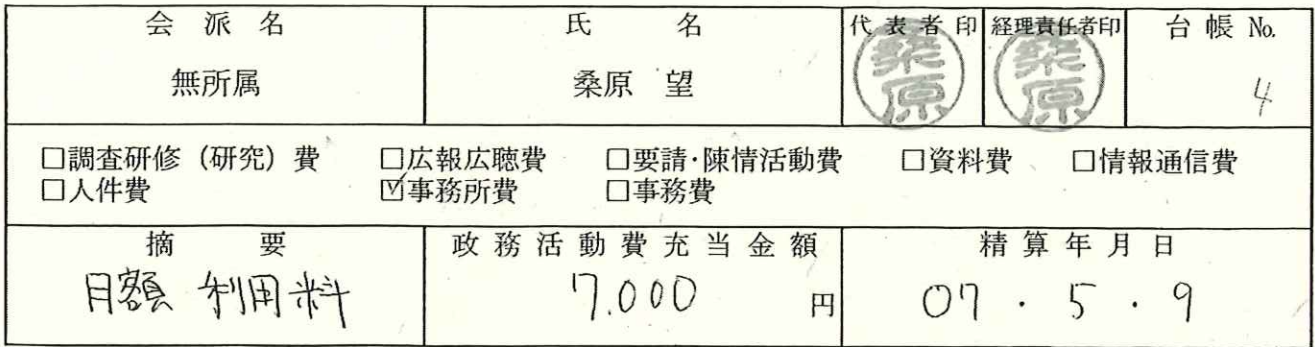 会派名 氏名 代表者印 経理責任者印 台帳 No.
無所属 桑原 望 桑原 桑原 4
□調査研修(研究)費 □広報広聴費 □要請・陳情活動費 □資料費 □情報通信費
□人件費 ☑事務所費 □事務費
摘要 政務活動費充当金額 精算年月日
月額 利用料 7.000 円 07・5・9